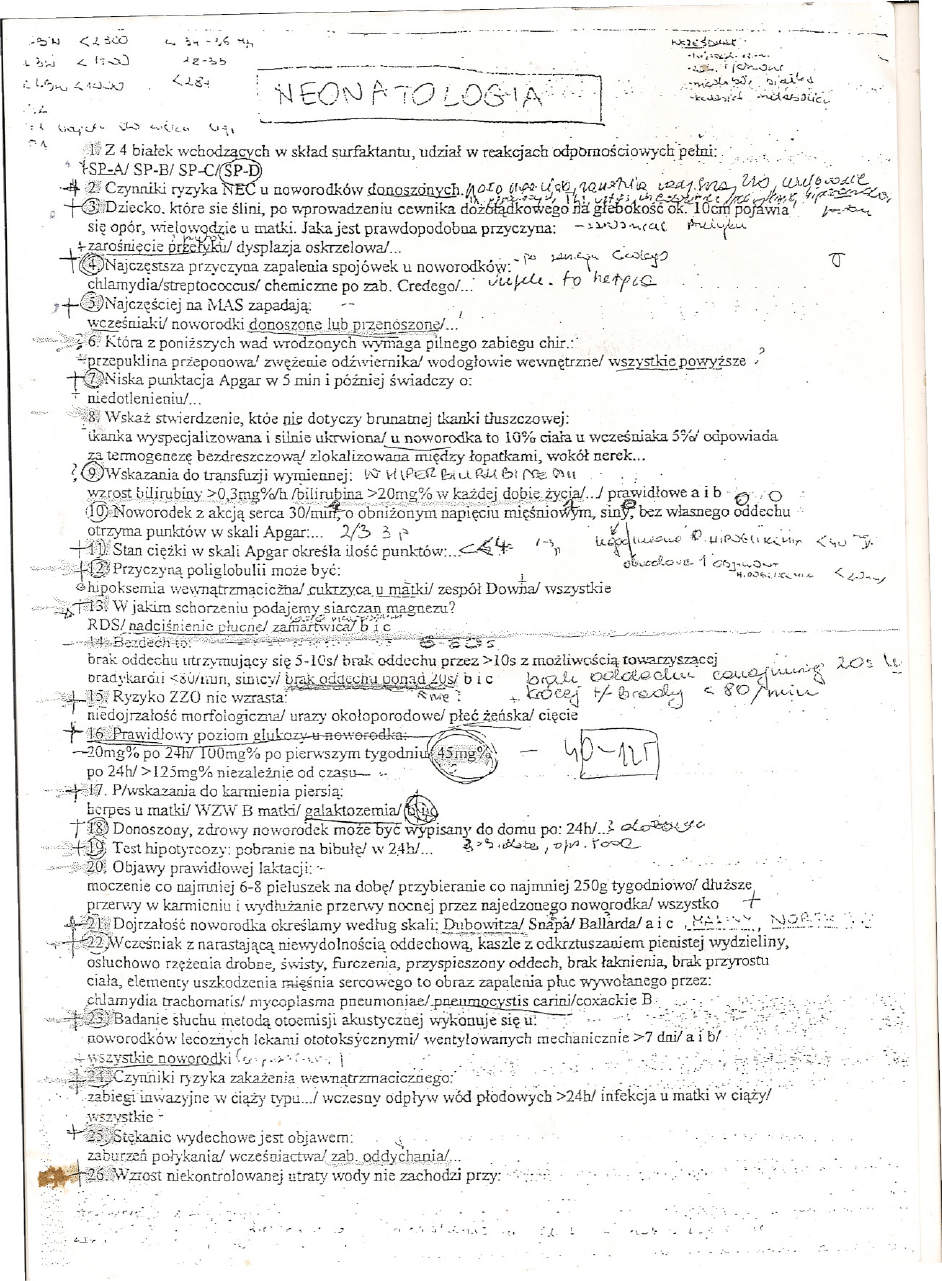 <2500
34-36
<1500
28-35
<1000
<28
NEONATOLOGIA
1. Z 4 białek wchodzących w skład surfaktantu, udział w reakcjach odpornościowych pełni:
SP-A/ SP-B/ SP-C/ SP-D
2. Czynniki ryzyka NEC u noworodków donoszonych.
3. Dziecko, które sie ślini, po wprowadzeniu cewnika dożołądkowego na głębokość ok. 10cm pojawia
się opór, wielowodzie u matki. Jaka jest prawdopodobna przyczyna:
zarośnięcie przełyku/ dysplazja oskrzelowa/...
4. Najczęstsza przyczyna zapalenia spojówek u noworodków:
chlamydia/streptococcus/ chemiczne po zab. Credego/... to herpes
5. Najczęściej na MAS zapadają:
wcześniaki/ noworodki donoszone lub przenoszone/...
6. Która z poniższych wad wrodzonych wymaga pilnego zabiegu chir.:
przepuklina przeponowa/ zwężenie odźwiernika/ wodogłowie wewnętrzne/ wszystkie powyższe
7. Niska punktacja Apgar w 5 min i później świadczy o:
niedotlenieniu/...
8. Wskaż stwierdzenie, któe nie dotyczy brunatnej tkanki tłuszczowej:
tkanka wyspecjalizowana i silnie ukrwiona/ u noworodka to 10% ciała u wcześniaka 5%/ odpowiada
za termogenezę bezdreszczową/ zlokalizowana między łopatkami, wokół nerek...
? 9. Wskazania do transfuzji wymiennej: W HIPERBILIRUBINEMII
wzrost bilirubiny >0,3mg%/h /bilirubina >20mg% w każdej dobie życia/.../ prawidłowe a i b
10. Noworodek z akcją serca 30/min, o obniżonym napięciu mięśniowym, siny, bez własnego oddechu
otrzyma punktów w skali Apgar:... 2/3 3 p
11. Stan ciężki w skali Apgar określa ilość punktów:...
12. Przyczyną poliglobulii może być:
hipoksemia wewnątrzmaciczna/ cukrzyca u matki/ zespół Downa/ wszystkie
13. W jakim schorzeniu podajemy siarczan magnezu?
RDS/ nadciśnienie płucne/ zamartwica/ b i c
14. Bezdech to:
brak oddechu utrzymujący się 5-10s/ brak oddechu przez >10s z możliwością towarzyszącej
bradykardii <80/min, sinicy/ brak oddechu ponad 20s/ b i c
brak oddechu conajmniej 20s
krócej +/- brady < 80/min
15. Ryzyko ZZO nie wzrasta:
niedojrzałość morfologiczna/ urazy okołoporodowe/ płeć żeńska/ cięcie
16. Prawidłowy poziom glukozy u noworodka:
20mg% po 24h/ 100mg% po pierwszym tygodniu/ 45mg% — 40-125
po 24h/ >125mg% niezależnie od czasu
17. P/wskazania do karmienia piersią:
herpes u matki/ WZW B matki/ galaktozemia/
18. Donoszony, zdrowy noworodek może być wypisany do domu po: 24h/..
19. Test hipotyreozy: pobranie na bibułę/ w 24h/...
20. Objawy prawidłowej laktacji:
moczenie co najmniej 6-8 pieluszek na dobę/ przybieranie co najmniej 250g tygodniowo/ dłuższe
przerwy w karmieniu i wydłużanie przerwy nocnej przez najedzonego noworodka/ wszystko
21. Dojrzałość noworodka określamy według skali: Dubowitza/ Snapa/ Ballarda/ a i c
22. Wcześniak z narastającą niewydolnością oddechową, kaszle z odkrztuszaniem pienistej wydzieliny,
osłuchowo rzężenia drobne, świsty, furczenia, przyspieszony oddech, brak łaknienia, brak przyrostu
ciała, elementy uszkodzenia mięśnia sercowego to obraz zapalenia płuc wywołanego przez:
chlamydia trachomatis/ mycoplasma pneumoniae/ pneumocystis carini/coxackie B
23. Badanie słuchu metodą otoemisji akustycznej wykonuje się u:
noworodków leczonych lekami ototoksycznymi/ wentylowanych mechanicznie >7 dni/ a i b/
wszystkie noworodki
24. Czynniki ryzyka zakażenia wewnątrzmacicznego:
zabiegi inwazyjne w ciąży typu.../ wczesny odpływ wód płodowych >24h/ infekcja u matki w ciąży/
wszystkie
25. Stękanie wydechowe jest objawem:
zaburzeń połykania/ wcześniactwa/ zab. oddychania/...
26. Wzrost niekontrolowanej utraty wody nie zachodzi przy: